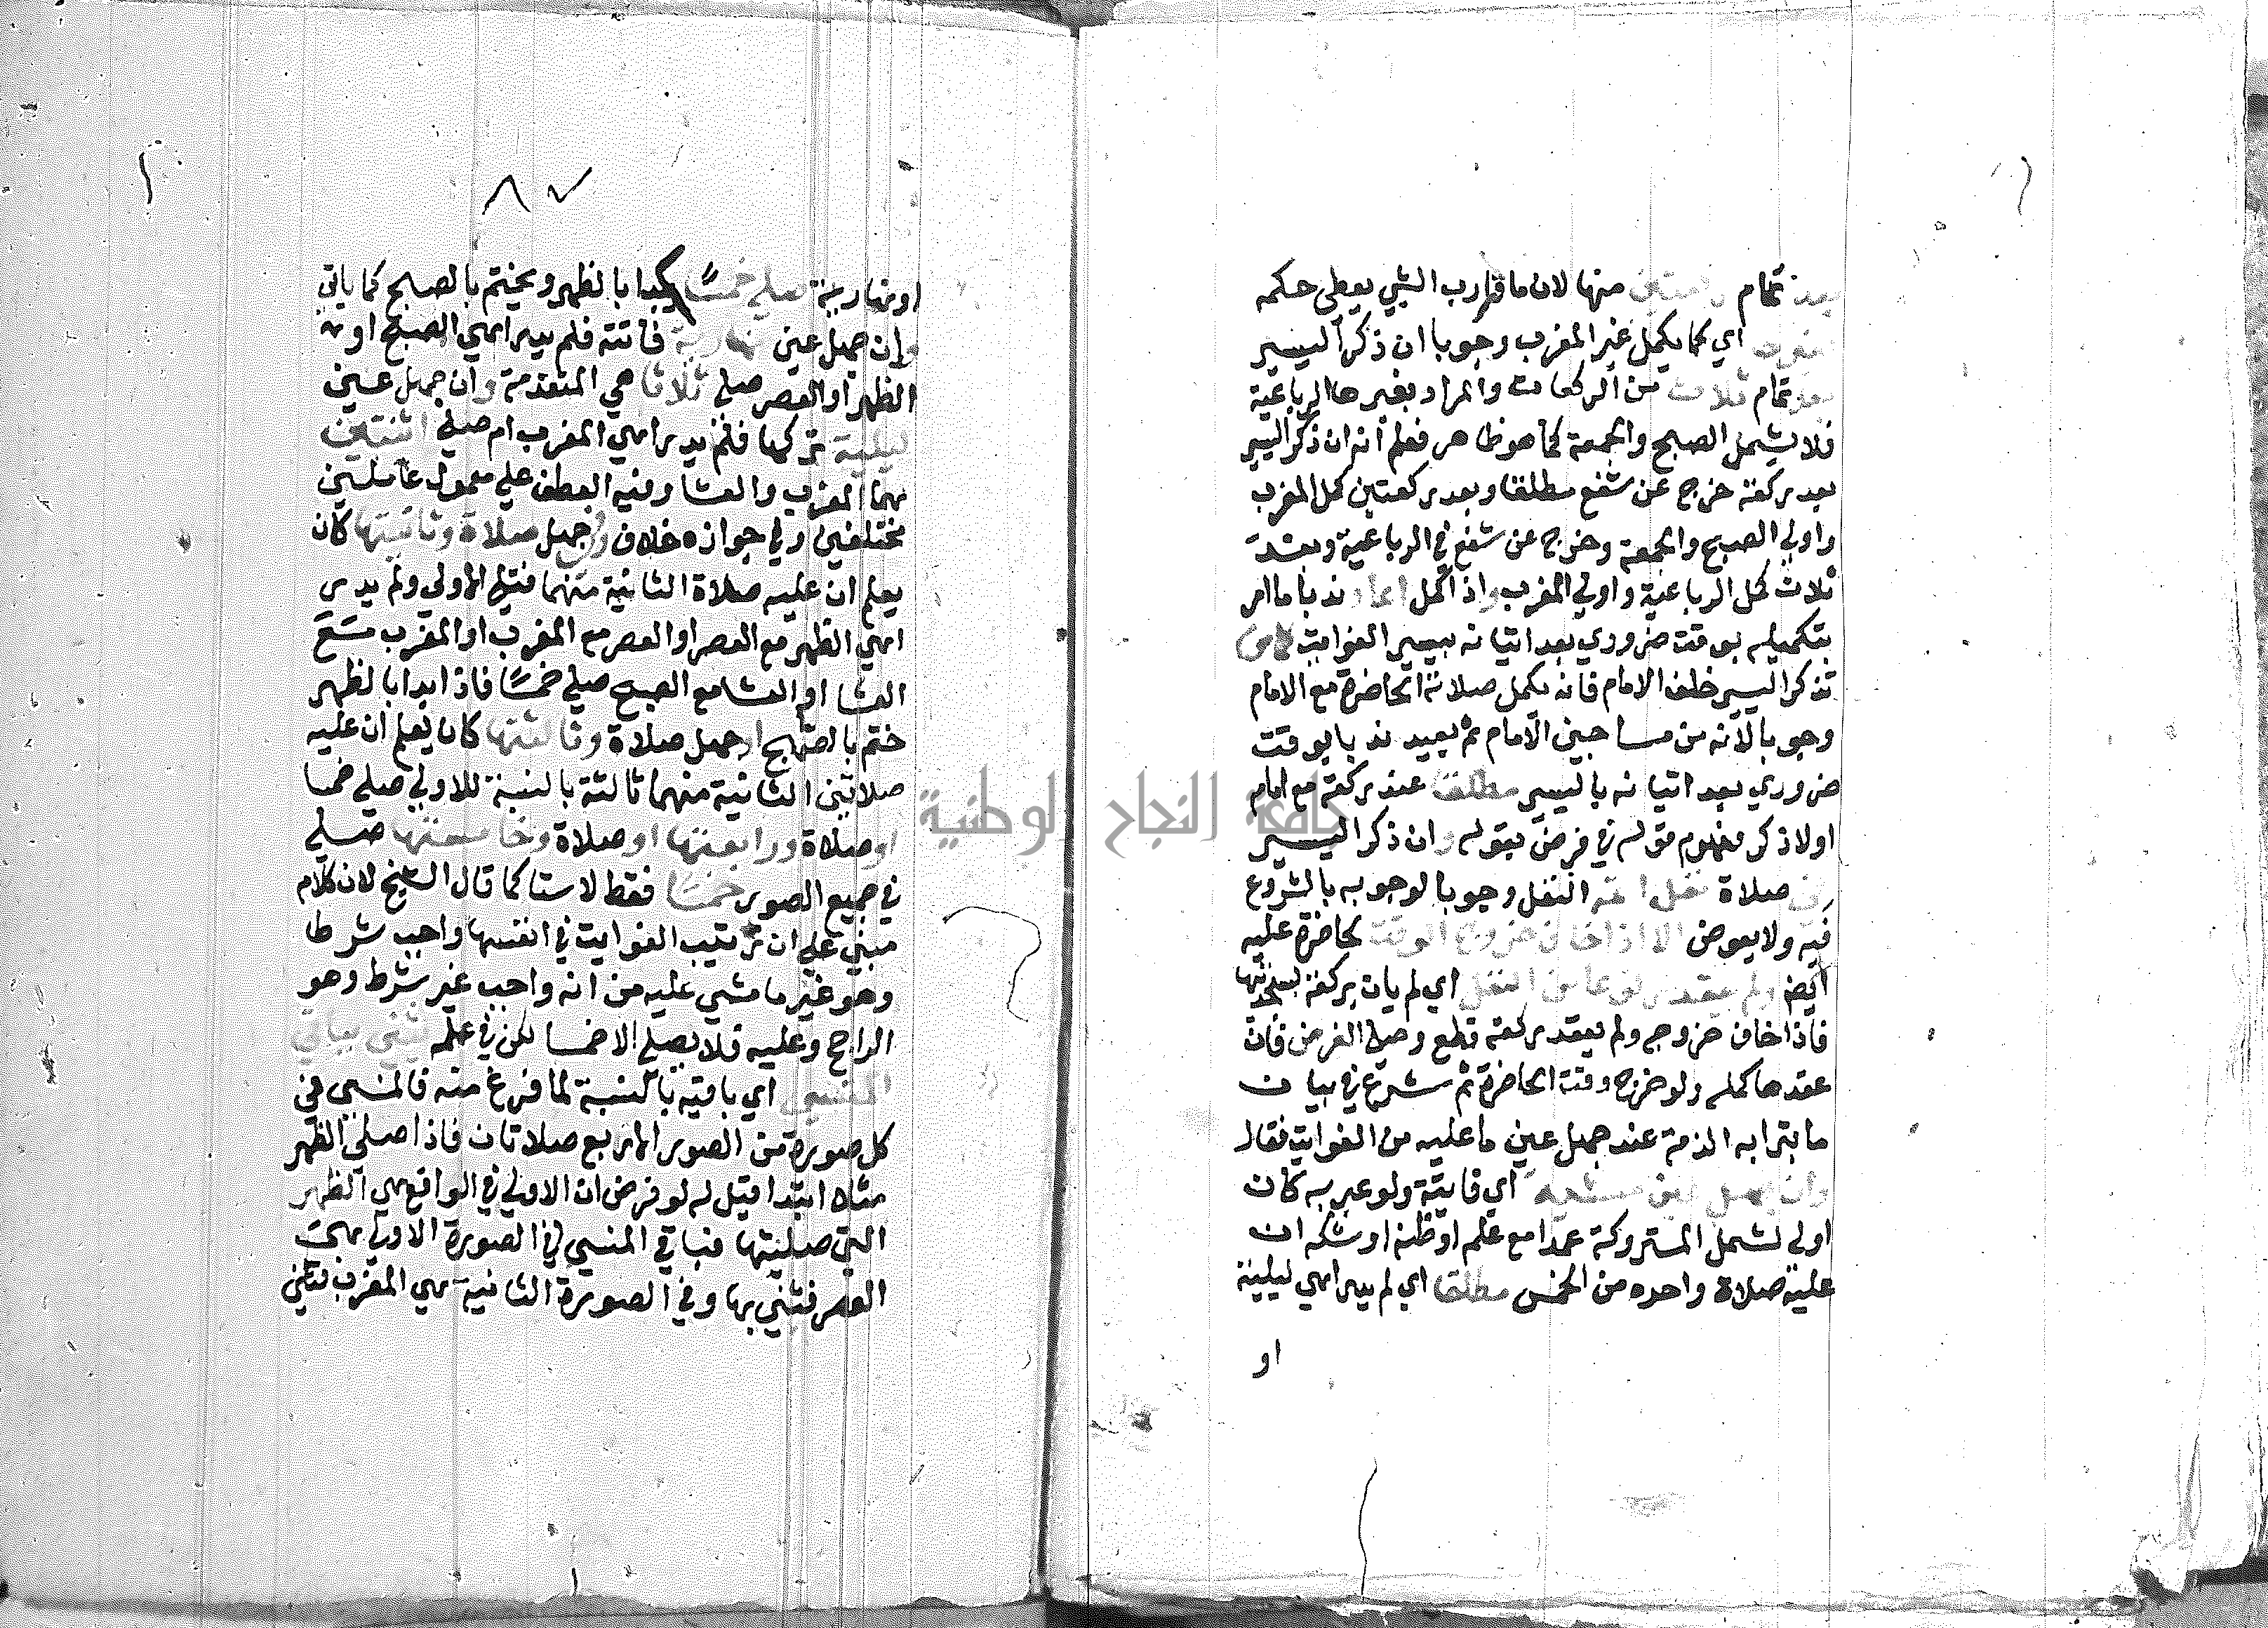 بعد تمام ركعتين منها لان ما قارب الشي يعطي حكمه
كمغرب اي كما يكمل غير المغرب وجوبا ان ذكر اليسير
بعد تمام ثلاث من الركعات والمراد بغيرها الرباعية
فلا يشمل الصبح والجمعة كما هو ظاهر فعلم انه ان ذكر اليسير
بعد ركعة خرج عن شفع مطلقا وبعد ركعتين كمل المغرب
واولي الصبح والجمعة وخرج عن شفع في الرباعية وبعد
ثلاث كمل الرباعية واولي المغرب واذا كمل اعاد ندبا ما امر
بتكميله بوقت ضروري بعد اتيانه بيسير الفوايت كمن
تذكر اليسير خلف الامام فانه يكمل صلاته الحاضرة مع الامام
وجوبا لانه من مساجين الامام ثم يعيد ندبا بوقت
ضروري بعد اتيانه باليسير مطلقا عقد ركعة مع امام
اولا ذكر مفهوم قوله في فرض بقوله وان ذكر اليسير
في صلاة نفل اتم النفل وجوبا لوجوبه بالشروع
فيه ولا يعوض الا اذا خاف خروج الوقت لحاضرة عليه
ايض ولم يعقد ركوعا من النفل اي لم يات بركعة بسجدتيها
فاذا خاف خروجه ولم يعقد ركعة قطع وصلي الفرض فان
عقدها كمله ولو خرج وقت الحاضرة ثم شرع في بيان
ما تبرا به الذمة عند جهل عين ما عليه من الفوايت فقال
وان جهل عين منسية اي فايتة ولو عبر به كان
اولي لشمل المتروكة عمدا مع علم او ظنه او شكه ان
عليه صلاة واحده من الخمس مطلقا اي لم يدر اهي ليلية
او
٨٧
او نهارية صلي خمسًا يبدا بالظهر ويختم بالصبح كما ياتي
وان جهل عين نهارية فائتة فلم يدر اهي الصبح او
الظهر او العصر صلي ثلاثا هي المتقدمة وان جهل عين
ليلية تركها فلم يدر اهي المغرب ام صلي اثنتين
هما المغرب والعشا وفيه العطف علي معمول عاملين
مختلفين وفي جوازه خلاف وان جهل صلاة وثانيتها كان
يعلم ان عليه صلاة الثانية منهما قبل الاولي ولم يدر
اهي الظهر مع العصر او العصر مع المغرب او المغرب مع
العشا او العشا مع الصبح صلي خمسًا فاذا ابدا بالظهر
ختم بالصبح او جهل صلاة وثالثتها كان يعلم ان عليه
صلاتين الثانية منهما ثالثة بالنسبة للاولي صلي خمسا
او صلاة ورابعتها او صلاة وخامستها صلي
في جميع الصور خمسًا فقط لا ستا كما قال الشيخ لان كلام
مبني علي ان ترتيب الفوايت في انفسها واجب شرطا
وهو غير ما مشي عليه من انه واجب غير شرط وهو
الراجح وعليه فلا يصلي الا خمسا لكن في علمه يثني بباقي
المنسي اي باقيه بالنسبة لما فرغ منه فالمنسي في
كل صورة من الصور الاربع صلاتان فاذا صلي الظهر
مثلا ابتدا قيل له لو فرض ان الاولي في الواقع هي الظهر
التي صليتها فباقي المنسي في الصورة الاولي هي
العصر فثني بها وفي الصورة الثانية هي المغرب فثني
جامعة النجاح الوطنية